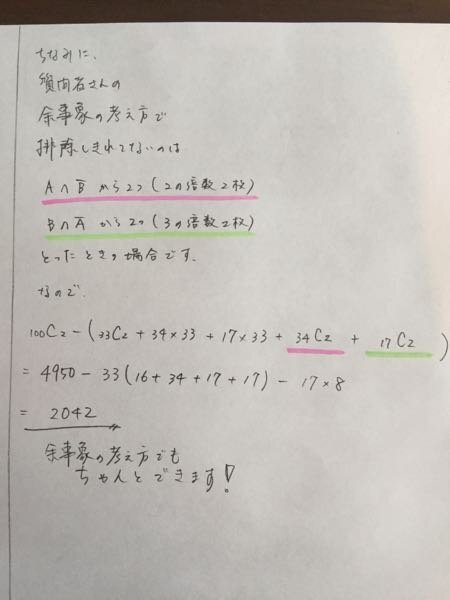 ちなみに、
質問者さんの
余事象の考え方で
排除しきれてないのは
A∩B̅ から2つ(2の倍数2枚)
B∩A̅ から2つ(3の倍数2枚)
とったときの場合です。
なので、
₁₀₀C₂-(₃₃C₂+34×33+17×33+₃₄C₂+₁₇C₂)
= 4950-33(16+34+17+17)-17×8
= 2042
余事象の考え方でも
ちゃんとできます!